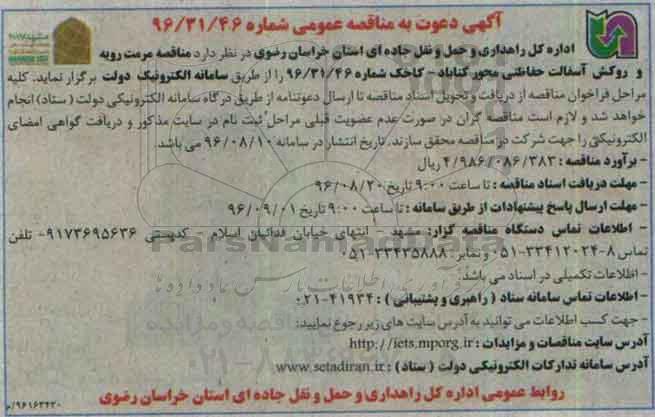 آگهی دعوت به مناقصه عمومی شماره ۹۶/۳۱/۴۶
اداره کل راهداری و حمل و نقل جاده ای استان خراسان رضوی در نظر دارد مناقصه مرمت رویه
و روکش آسفالت حفاظتی محور گناباد - کاخک شماره ۹۶/۳۱/۴۶ را از طریق سامانه الکترونیک دولت برگزار نماید. کلیه
مراحل فراخوان مناقصه از دریافت و تحویل اسناد مناقصه تا ارسال دعوتنامه از طریق درگاه سامانه الکترونیکی دولت ( ستاد) انجام
خواهد شد و لازم است مناقصه گران در صورت عدم عضویت قبلی مراحل ثبت نام در سایت مذکور و دریافت گواهی امضای
الکترونیکی را جهت شرکت در مناقصه محقق سازند. تاریخ انتشار در سامانه ۹۶/۰۸/۱۰ می باشد.
- برآورد مناقصه : ۴/۹۸۶/۰۸۶/۳۸۳ ریال
- مهلت دریافت اسناد مناقصه : تا ساعت ۹:۰۰ تاریخ ۹۶/۰۸/۲۰
- مهلت ارسال پاسخ پیشنهادات از طریق سامانه : تا ساعت ۹:۰۰ تاریخ ۹۶/۰۹/۰۱
- اطلاعات تماس دستگاه مناقصه گزار: مشهد - انتهای خیابان فدائیان اسلام - کدپستی ۹۱۷۳۶۹۵۶۳۶- تلفن
تماس ۸-۳۳۴۱۲۰۲۴-۰۵۱ و نمابر : ۳۳۴۳۵۸۸۸-۰۵۱
- اطلاعات تکمیلی در اسناد می باشد.
- اطلاعات تماس سامانه ستاد ( راهبری و پشتیبانی ) : ۴۱۹۳۴-۰۲۱
- جهت کسب اطلاعات می توانید به آدرس سایت های زیر رجوع نمایید:
آدرس سایت مناقصات و مزایدات : http://iets.mporg.ir
آدرس سامانه تدارکات الکترونیکی دولت ( ستاد) : www.setadiran.ir
روابط عمومی اداره کل راهداری و حمل و نقل جاده ای استان خراسان رضوی
ParsNamadData